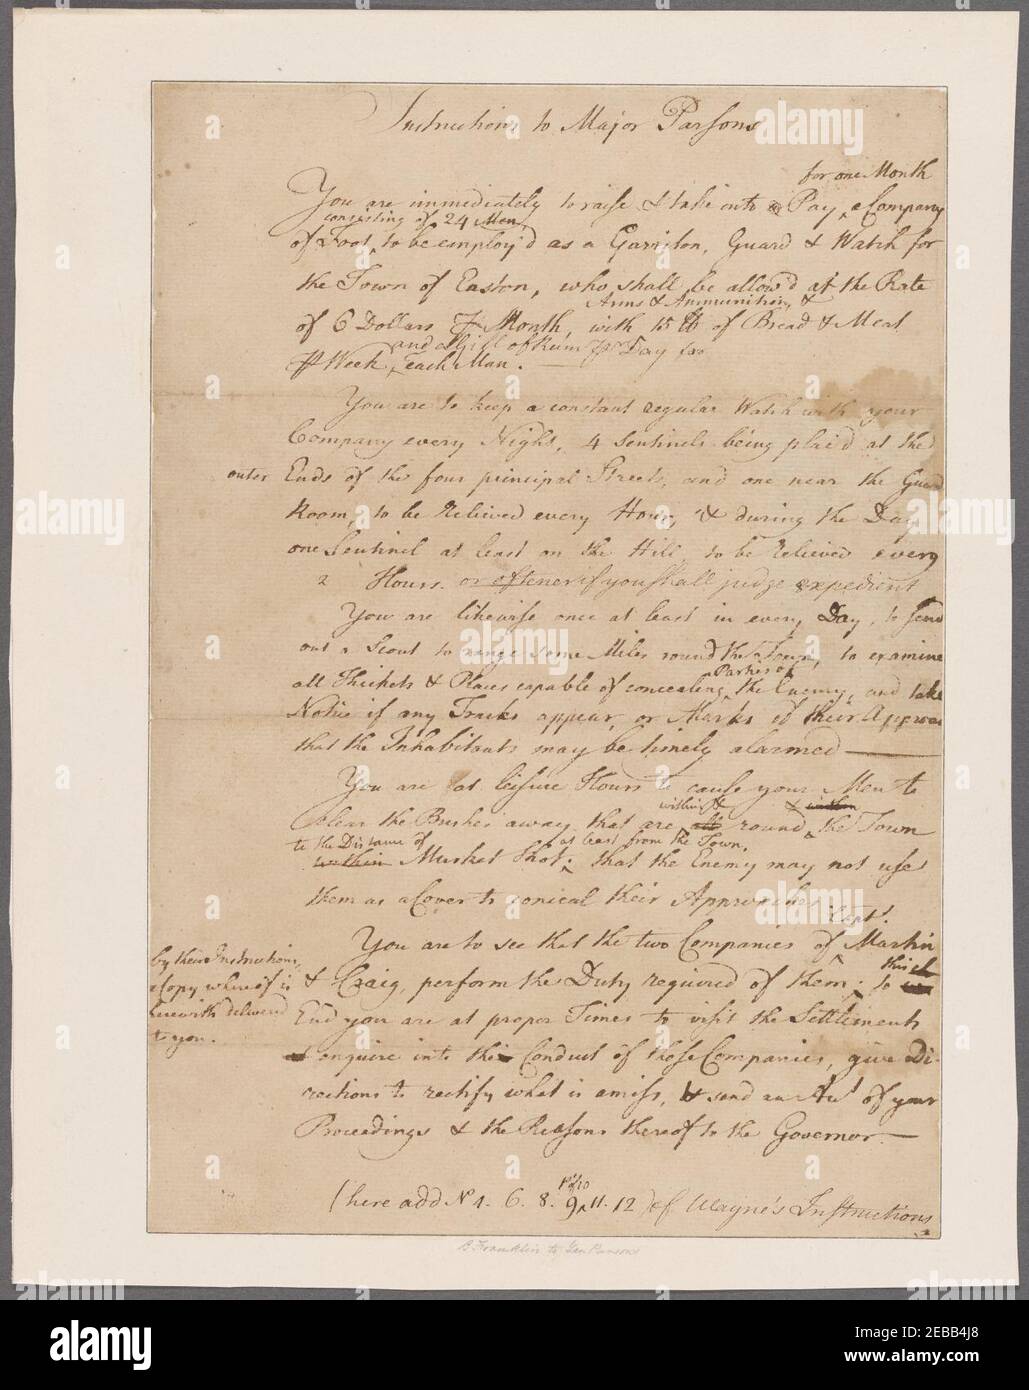 Instructions to Major Parsons
for one Month
You are immediately to raise & take into Pay, a Company
consisting of 24 Men
of Foot, to be employ'd as a Garrison, Guard & Watch for
the Town of Easton, who shall be allow'd at the Rate
Arms & Ammunition, &
of 6 Dollars ⅌ Month, with 15 lb of Bread & Meat
and a Gill of Rum ⅌ Day for
⅌ Week, each Man.
You are to keep a constant regular Watch with your
Company every Night, 4 Sentinels being plac'd at the
outer Ends of the four principal Streets, and one near the Guard
Room, to be relieved every Hour, & during the Day
one Sentinel at least on the Hill, to be relieved every
2 Hours. or oftener if you shall judge expedient
You are likewise once at least in every Day, to send
out a Scout to range some Miles round the Town, to examine
Parties of
all Thickets & Places capable of concealing the Enemy, and take
Notice if any Tracks appear, or Marks of their Approach
that the Inhabitants may be timely alarmed
You are at leisure Hours to cause your Men to
within & & within
clear the Bushes away that are all round the Town
to the Distance of at least from the Town.
within Musket Shot, that the Enemy may not use
them as a Cover to conceal their Approaches
Capt.
You are to see that the two Companies of Martin
by their Instructions, this
& Craig, perform the Duty required of them; to
a Copy whereof is
herewith delivered
End you are at proper Times to visit the Settlements
to you.
& enquire into the Conduct of those Companies, give Di-
rections to rectify what is amiss, & send an Acct of your
Proceedings & the Reasons thereof to the Governor.
(here add No 4. 6. 8. 9 11. 12) of Wayne's Instructions
B. Franklin to Gen Parsons
alamy
Image ID: 2EBB4J8
www.alamy.com